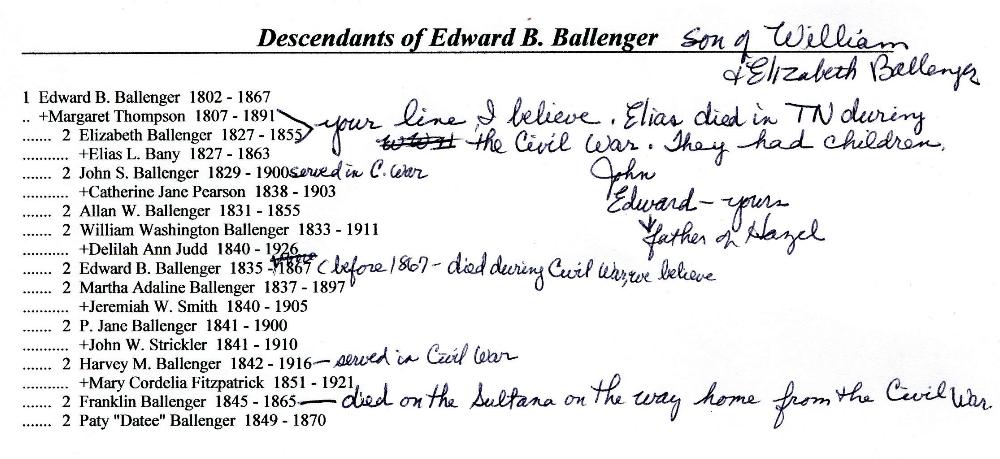 Descendants of Edward B. Ballenger son of William
& Elizabeth Ballenger
1 Edward B. Ballenger 1802 - 1867
.. +Margaret Thompson 1807 - 1891
....... 2 Elizabeth Ballenger 1827 - 1855 your line, I believe. Elias died in TN during
........... +Elias L. Bany 1827 - 1863 the Civil War. They had children,
....... 2 John S. Ballenger 1829 - 1900 served in C. War John
........... +Catherine Jane Pearson 1838 - 1903 Edward - yours
....... 2 Allan W. Ballenger 1831 - 1855
....... 2 William Washington Ballenger 1833 - 1911 father of Hazel
........... +Delilah Ann Judd 1840 - 1926
....... 2 Edward B. Ballenger 1835 - 1867 (before 1867 - died during Civil War, we believe
....... 2 Martha Adaline Ballenger 1837 - 1897
........... +Jeremiah W. Smith 1840 - 1905
....... 2 P. Jane Ballenger 1841 - 1900
........... +John W. Strickler 1841 - 1910
....... 2 Harvey M. Ballenger 1842 - 1916 - served in Civil War
........... +Mary Cordelia Fitzpatrick 1851 - 1921
....... 2 Franklin Ballenger 1845 - 1865 - died on the Sultana on the way home from the Civil War.
....... 2 Paty "Datee" Ballenger 1849 - 1870